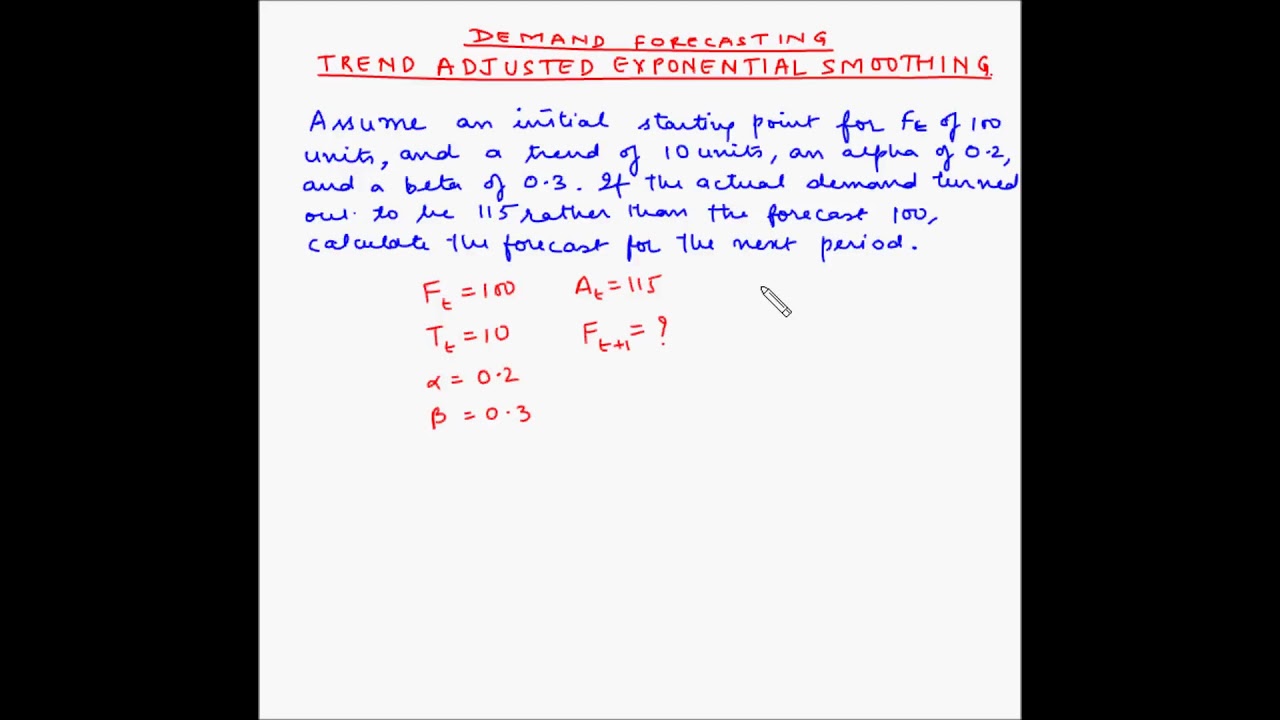 DEMAND FORECASTING
TREND ADJUSTED EXPONENTIAL SMOOTHING.
Assume an initial starting point for Ft of 100
units, and a trend of 10 units, an alpha of 0.2,
and a beta of 0.3. If the actual demand turned
out to be 115 rather than the forecast 100,
calculate the forecast for the next period.
Ft = 100 At = 115
Tt = 10 Ft+1 = ?
α = 0.2
β = 0.3